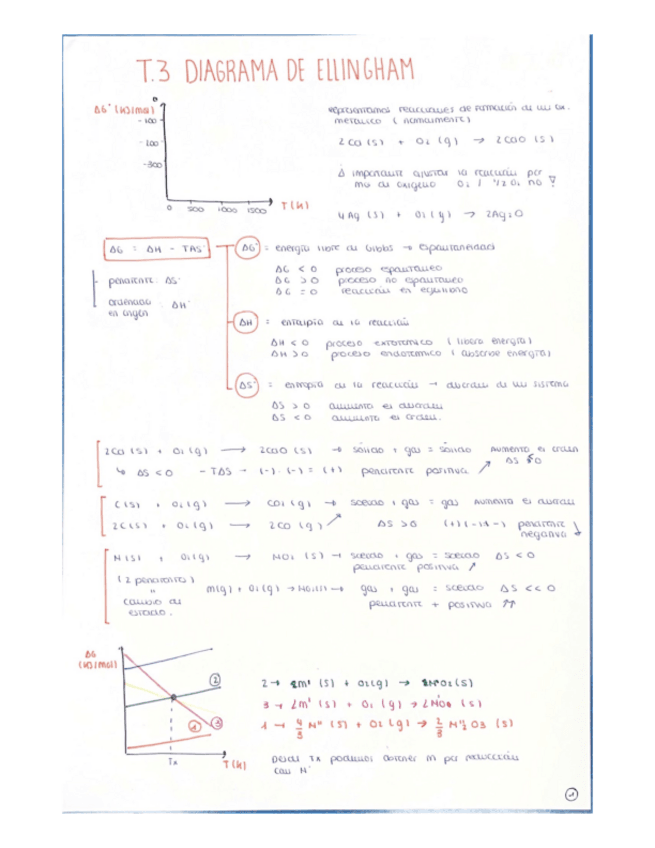 T.3 DIAGRAMA DE ELLINGHAM
ΔG° (KJ/mol)
0
-100
-300
0 500 1000 1500 T (K)
representamos reacciones de formación de un ox.
metálico (normalmente)
2Ca (s) + O2 (g) → 2CaO (s)
Δ importante ajustar la reacción por
mol de oxígeno O2 / 1/2 O2 no ?
4Ag (s) + O2 (g) → 2Ag2O
ΔG = ΔH - TΔS°
pendiente: ΔS°
ordenada
en origen : ΔH°
ΔG° = energía libre de Gibbs → espontaneidad
ΔG < 0 proceso espontáneo
ΔG > 0 proceso no espontáneo
ΔG = 0 reacción en equilibrio
ΔH = entalpía de la reacción
ΔH < 0 proceso exotérmico (libera energía)
ΔH > 0 proceso endotérmico (absorbe energía)
ΔS° = entropía de la reacción → desorden de un sistema
ΔS > 0 aumenta el desorden
ΔS < 0 aumenta el orden.
2Ca (s) + O2 (g) → 2CaO (s) → sólido + gas = sólido aumenta el orden
ΔS < 0
↳ ΔS < 0 - TΔS - (-) · (-) = (+) pendiente positiva ↗
C (s) + O2 (g) → CO2 (g) → sólido + gas = gas aumenta el desorden
2C (s) + O2 (g) → 2CO (g) ↗ ΔS > 0 pendiente
negativa
M (s) + O2 (g) → MO2 (s) → sólido + gas = sólido ΔS < 0
pendiente positiva ↗
(2 pendientes)
"
cambio de
estado.
M(g) + O2 (g) → → gas + gas = sólido ΔS << 0
pendiente + positiva ↑↑
ΔG
(KJ/mol)
2
1
3
Tx T (K)
2 → (s) + O2(g) → (s)
3 → 2M' (s) + O2 (g) → (s)
1 → 4/3 M'' (s) + O2 (g) → 2/3 M''2 O3 (s)
Desde Tx podemos obtener M por reducción
con M'
1